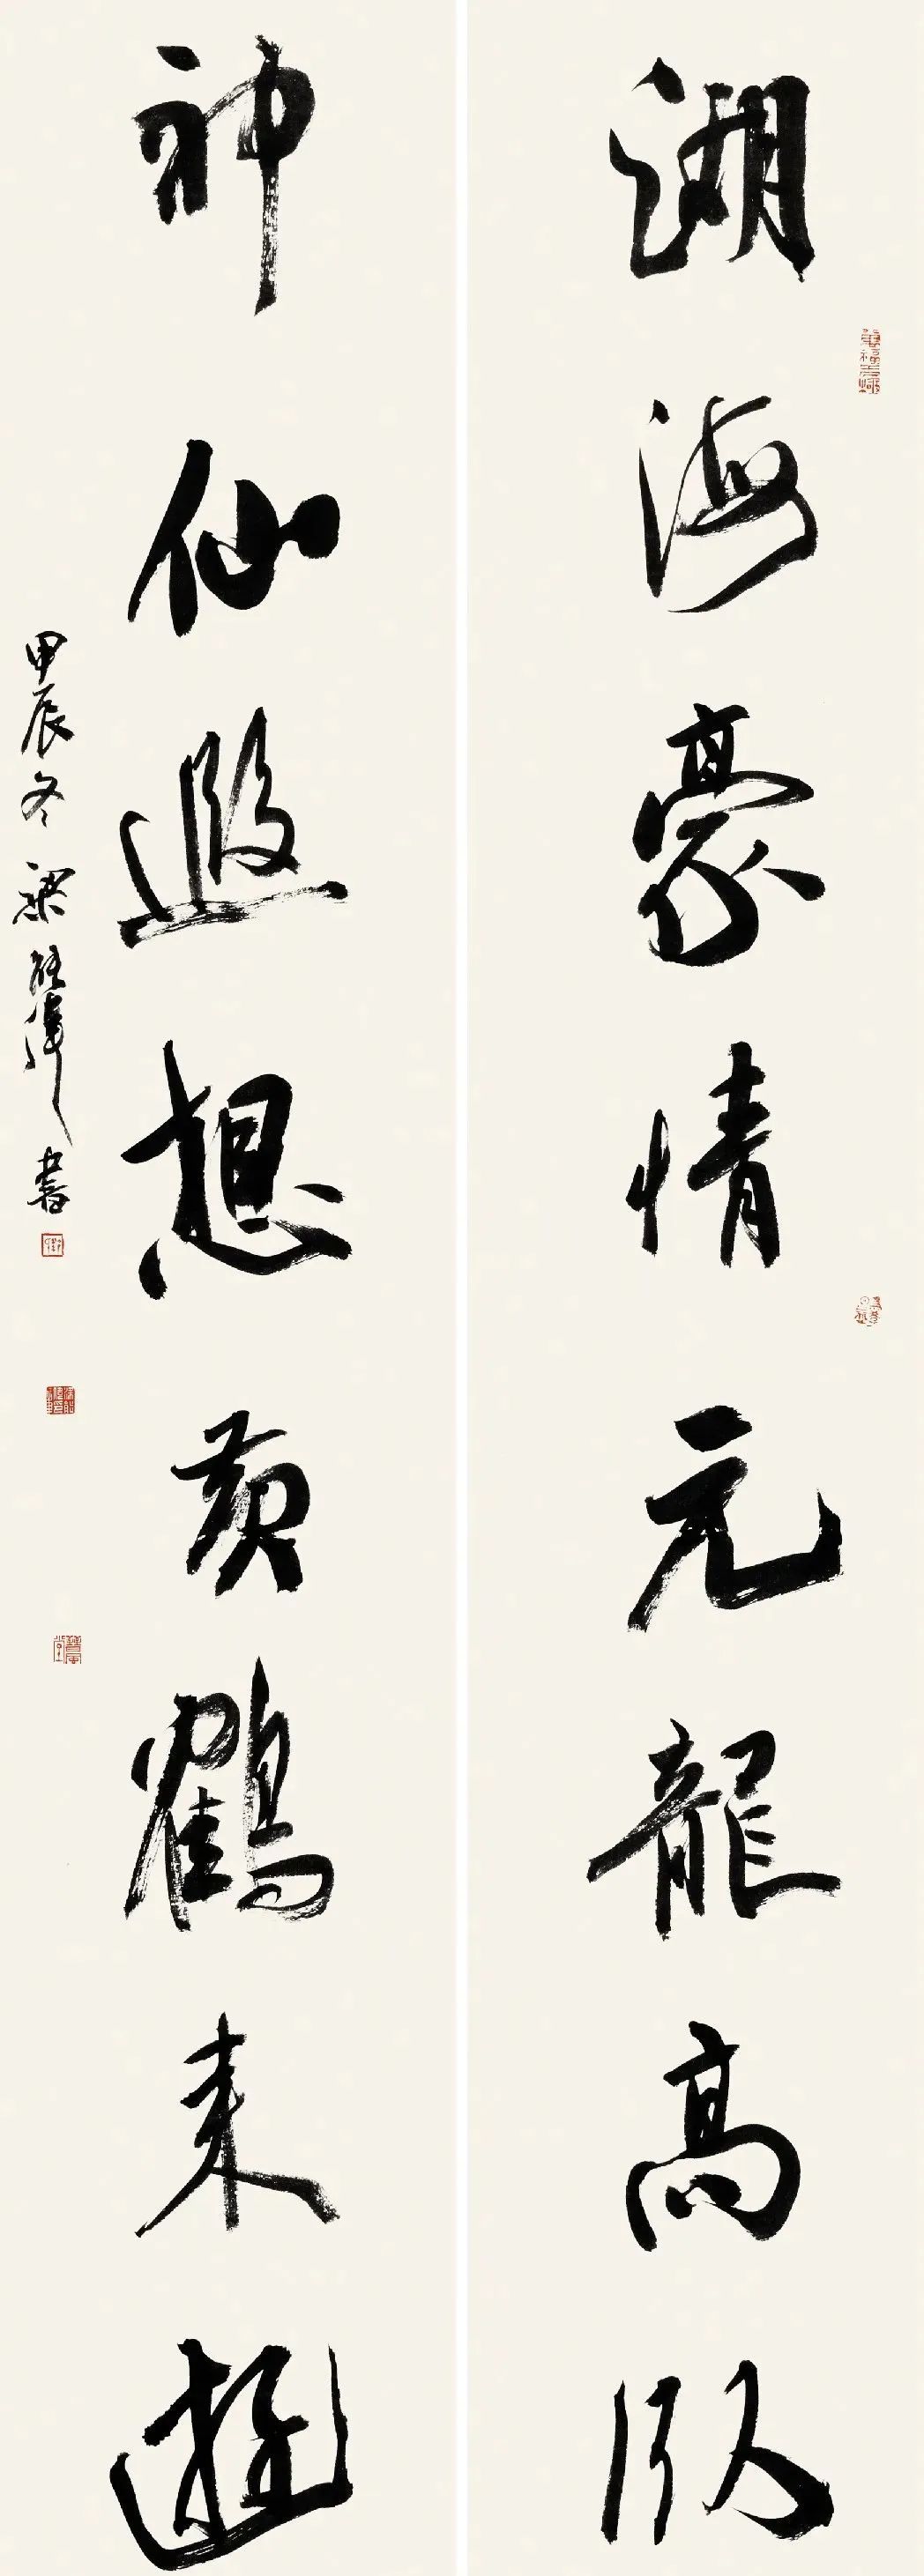 湖海豪情元龍高臥
神仙遐想黃鶴来遊
甲辰冬梁 書